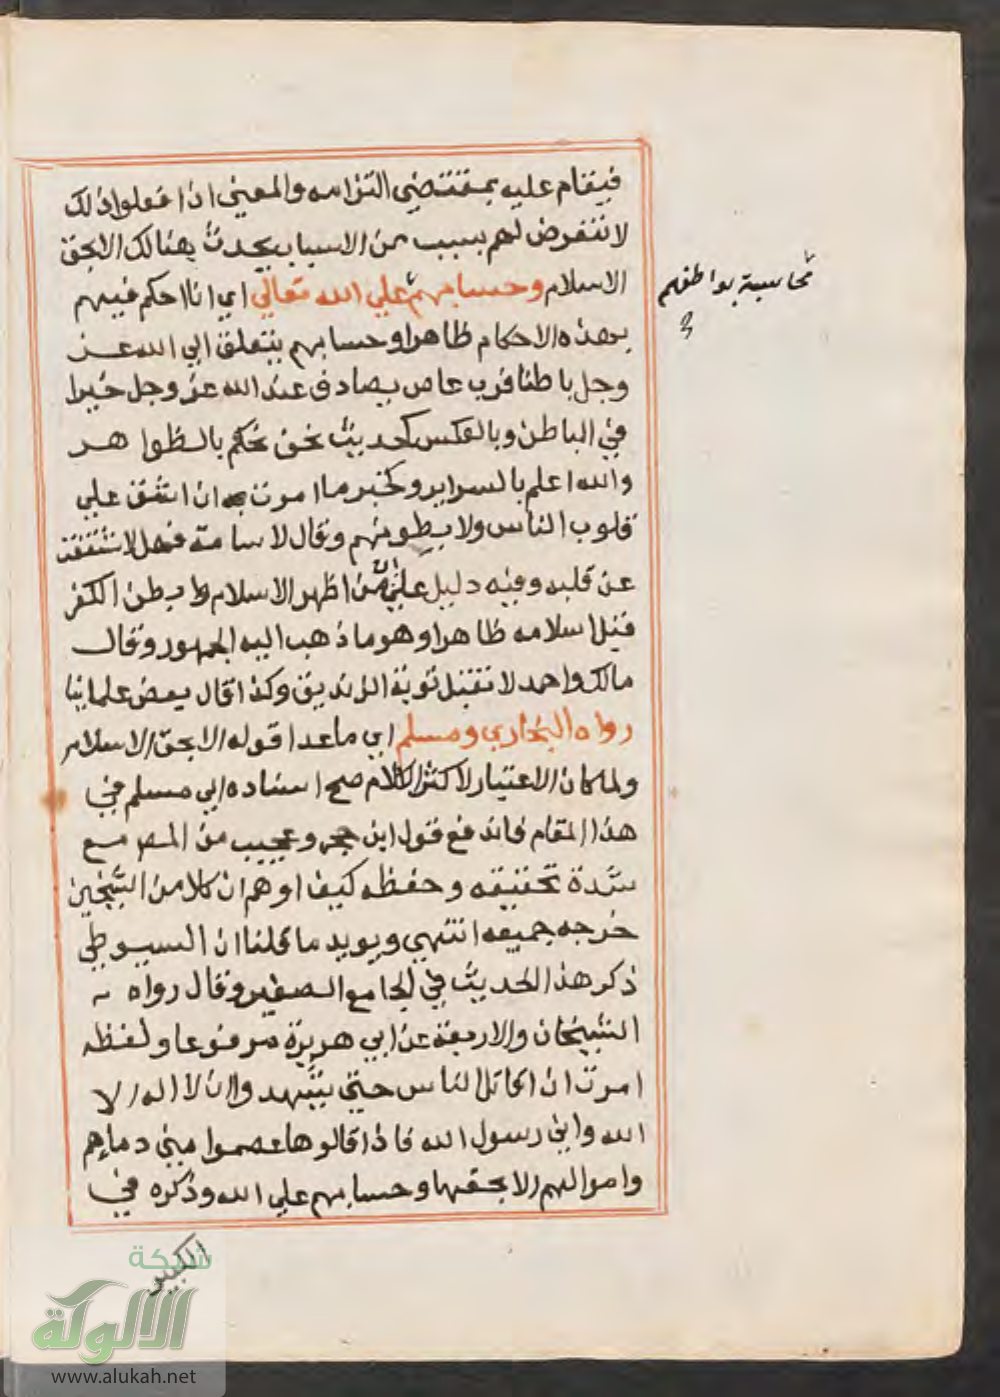 فيقام عليه بمقتضي التزامه والمعني اذا فعلوا ذلك
لا نتعرض لهم بسبب من الاسباب بحدث هنالك الا بحق
الاسلام وحسابهم علي الله تعالي اي انا احكم فيهم
محاسبة بواطنهم
بهذه الاحكام ظاهرا وحسابهم يتعلق الي الله عز
وجل باطنا فرب عاص يصادف عند الله عز وجل خيرا
في الباطن وبالعكس كحديث نحن نحكم بالظواهر
والله اعلم بالسراير وكخبر ما امرت ان اشق علي
قلوب الناس ولا بطونهم وقال لاسامة فهل لا شققت
عن قلبه وفيه دليل علي ان من اظهر الاسلام وابطن الكفر
قبل اسلامه ظاهرا وهو ما ذهب اليه الجمهور وقال
مالك واحمد لا تقبل توبة الزنديق وكذا قال بعض علماينا
رواه البخاري ومسلم اي ما عدا قوله الا بحق الاسلام
ولما كان الاعتبار لاكثر الكلام صح اسناده الي مسلم في
هذا المقام فاندفع قول ابن حجر وعجيب من المص مع
شدة تحقيقه وحفظه كيف اوهم ان كلا من الشيخين
خرجه جميعه انتهي ويويد ما قلنا ان السيوطي
ذكر هذا الحديث في الجامع الصغير وقال رواه
الشيخان والاربعة عن ابي هريرة مرفوعا ولفظه
امرت ان اقاتل الناس حتي يشهدوا ان لا اله الا
الله واني رسول الله فاذا قالوها عصموا مني دماءهم
واموالهم الا بحقها وحسابهم علي الله وذكره في
الكبير
شبكة
الألوكة
www.alukah.net